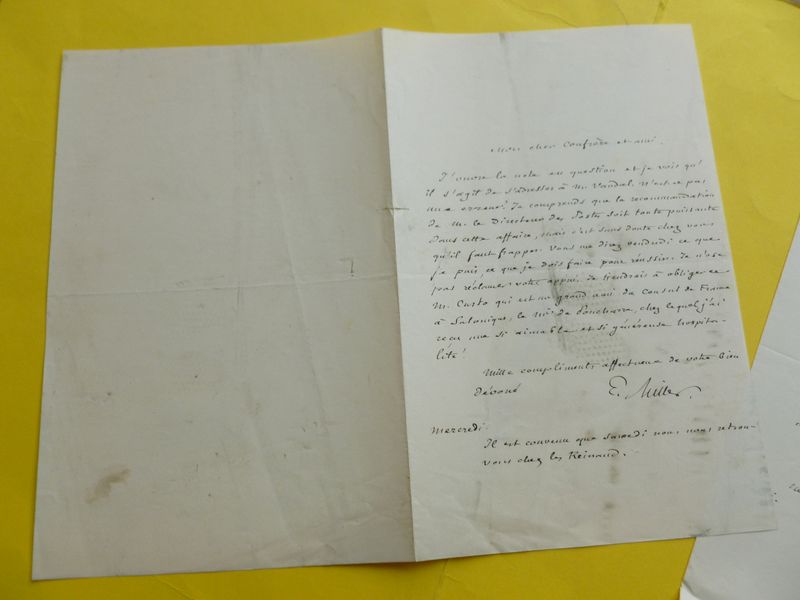 Mon cher Confrère et ami,
J'ouvre la note en question et je vois qu'
il s'agit de s'adresser à M. Vandal. N'est-ce pas
une erreur? Je comprends que la recommandation
de M. le Directeur des Postes soit toute puissante
dans cette affaire, mais c'est sans doute chez vous
qu'il faut frapper. Vous me direz vendredi ce que
je puis, ce que je dois faire pour réussir. Je n'ose
pas réclamer votre appui. Je tiendrais à obliger ce
M. Custo qui est un grand ami du Consul de France
à Salonique, le Mis de Poncharra, chez lequel j'ai
reçu une si aimable et si généreuse hospita-
lité!
Mille compliments affectueux de votre bien
dévoué E. Miller
Mercredi.
Il est convenu que samedi nous nous retrou-
vons chez les Reinaud.